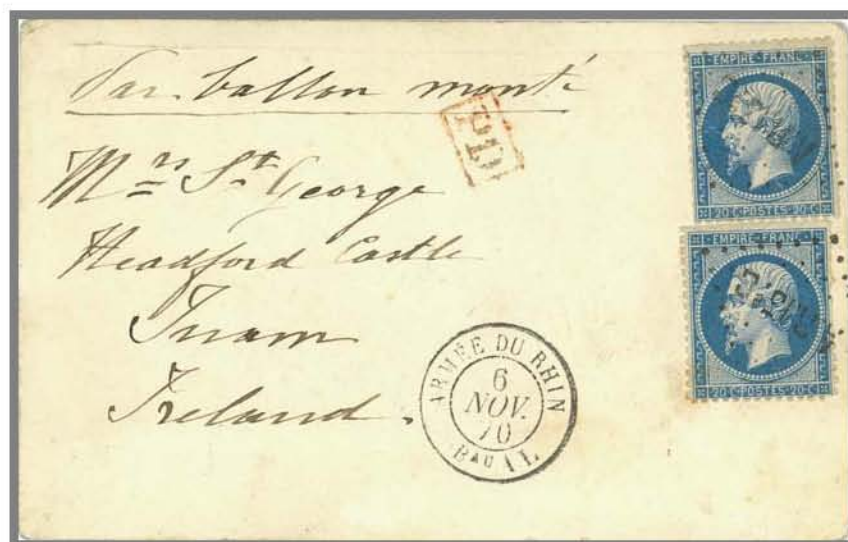 Par ballon monté
PD
Mrs St George
Headford Castle
Tuam
Ireland.
EMPIRE FRANC
20 C POSTES 20 C
EMPIRE FRANC
20 C POSTES 20 C
ARMÉE DU RHIN
6
NOV.
70